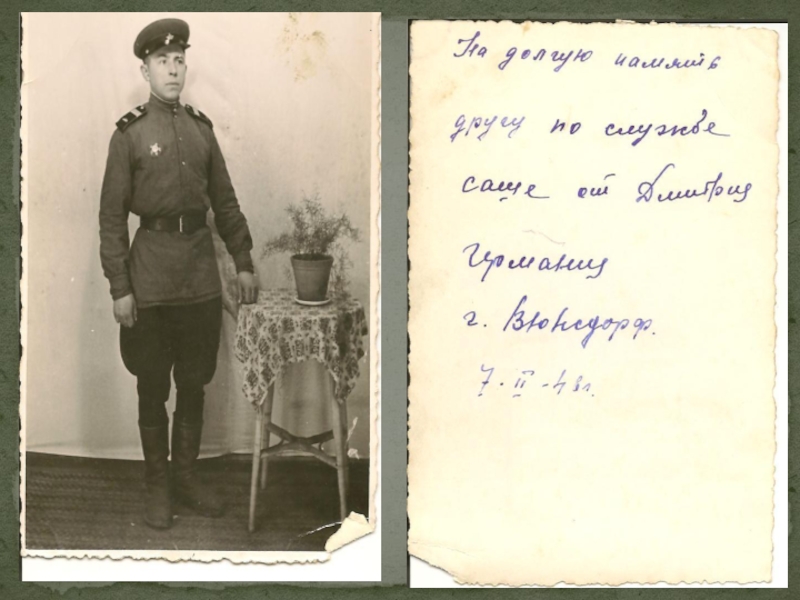 На долгую память
другу по службе
саше от Дмитрия
Германия
г. Вюнсдорф.
7·II-48г.